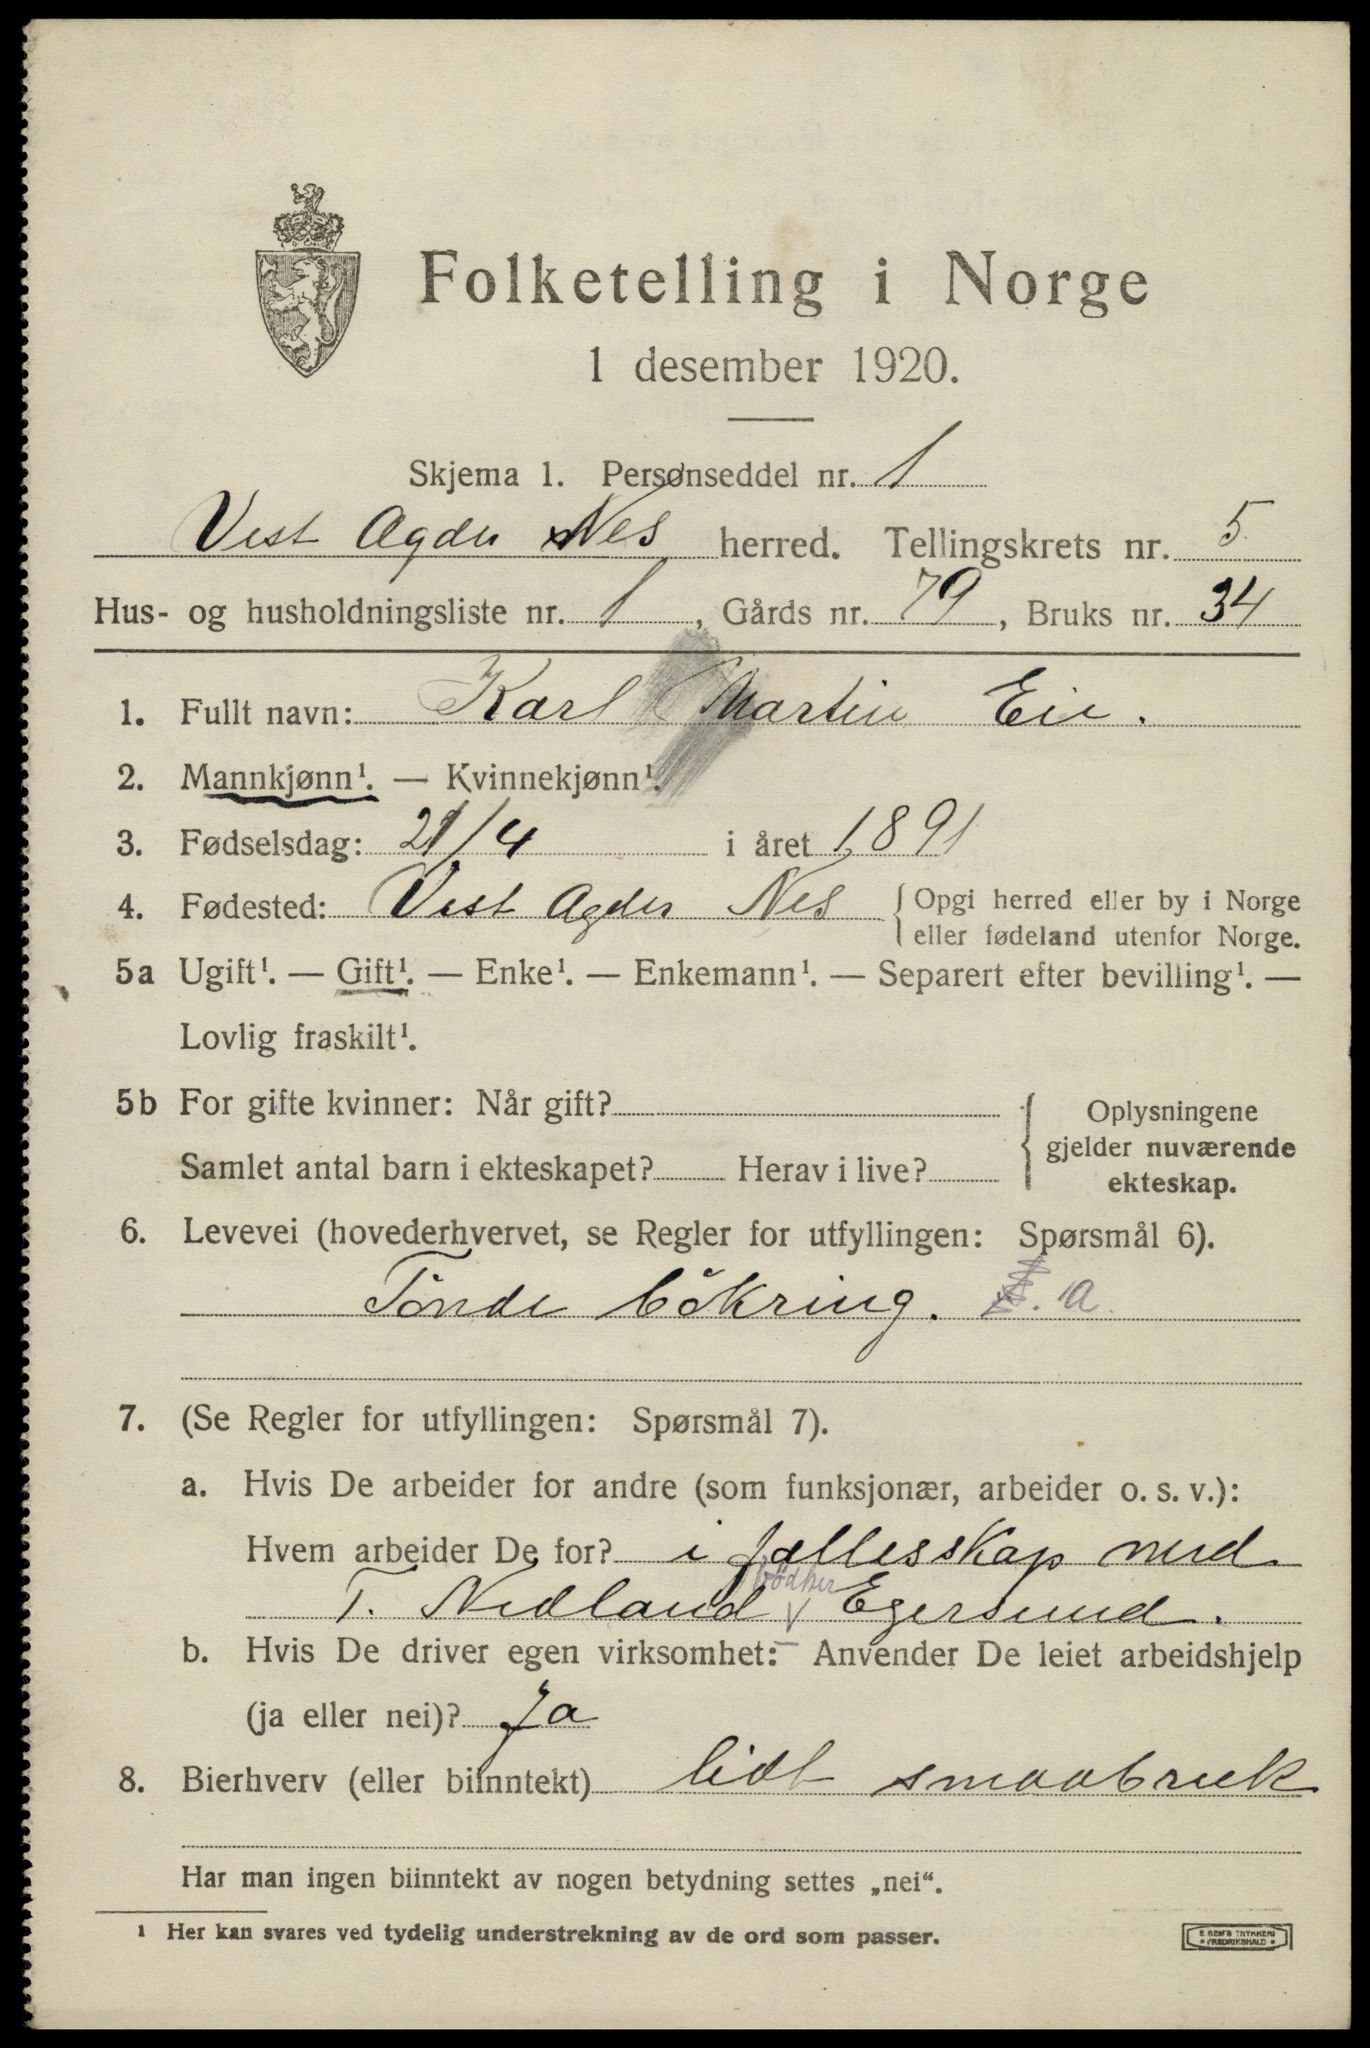 Folketelling i Norge
1 desember 1920.
Skjema 1. Personseddel nr. 1
Vest Agder Nes herred. Tellingskrets nr. 5
Hus- og husholdningsliste nr. 1, Gårds nr. 79, Bruks nr. 34
1. Fullt navn: Karl Martin Eie.
2. Mannkjønn¹. — Kvinnekjønn¹.
3. Fødselsdag: 21/4 i året 1891
4. Fødested: Vest Agder Nes { Opgi herred eller by i Norge
eller fødeland utenfor Norge.
5a Ugift¹. — Gift¹. — Enke¹. — Enkemann¹. — Separert efter bevilling¹. —
Lovlig fraskilt¹.
5b For gifte kvinner: Når gift? { Oplysningene
gjelder nuværende
Samlet antal barn i ekteskapet? Herav i live?
ekteskap.
6. Levevei (hovederhvervet, se Regler for utfyllingen: Spørsmål 6).
Tönde bökring. a.
7. (Se Regler for utfyllingen: Spørsmål 7).
a. Hvis De arbeider for andre (som funksjonær, arbeider o. s. v.):
Hvem arbeider De for? i fællesskap med
bödker
T. Nedland V Egersund.
b. Hvis De driver egen virksomhet: Anvender De leiet arbeidshjelp
(ja eller nei)? Ja
8. Bierhverv (eller biinntekt) lidt smaabruk
Har man ingen biinntekt av nogen betydning settes „nei“.
¹ Her kan svares ved tydelig understrekning av de ord som passer.
E SEM'S TRYKKERI
FREDRIKSHALD